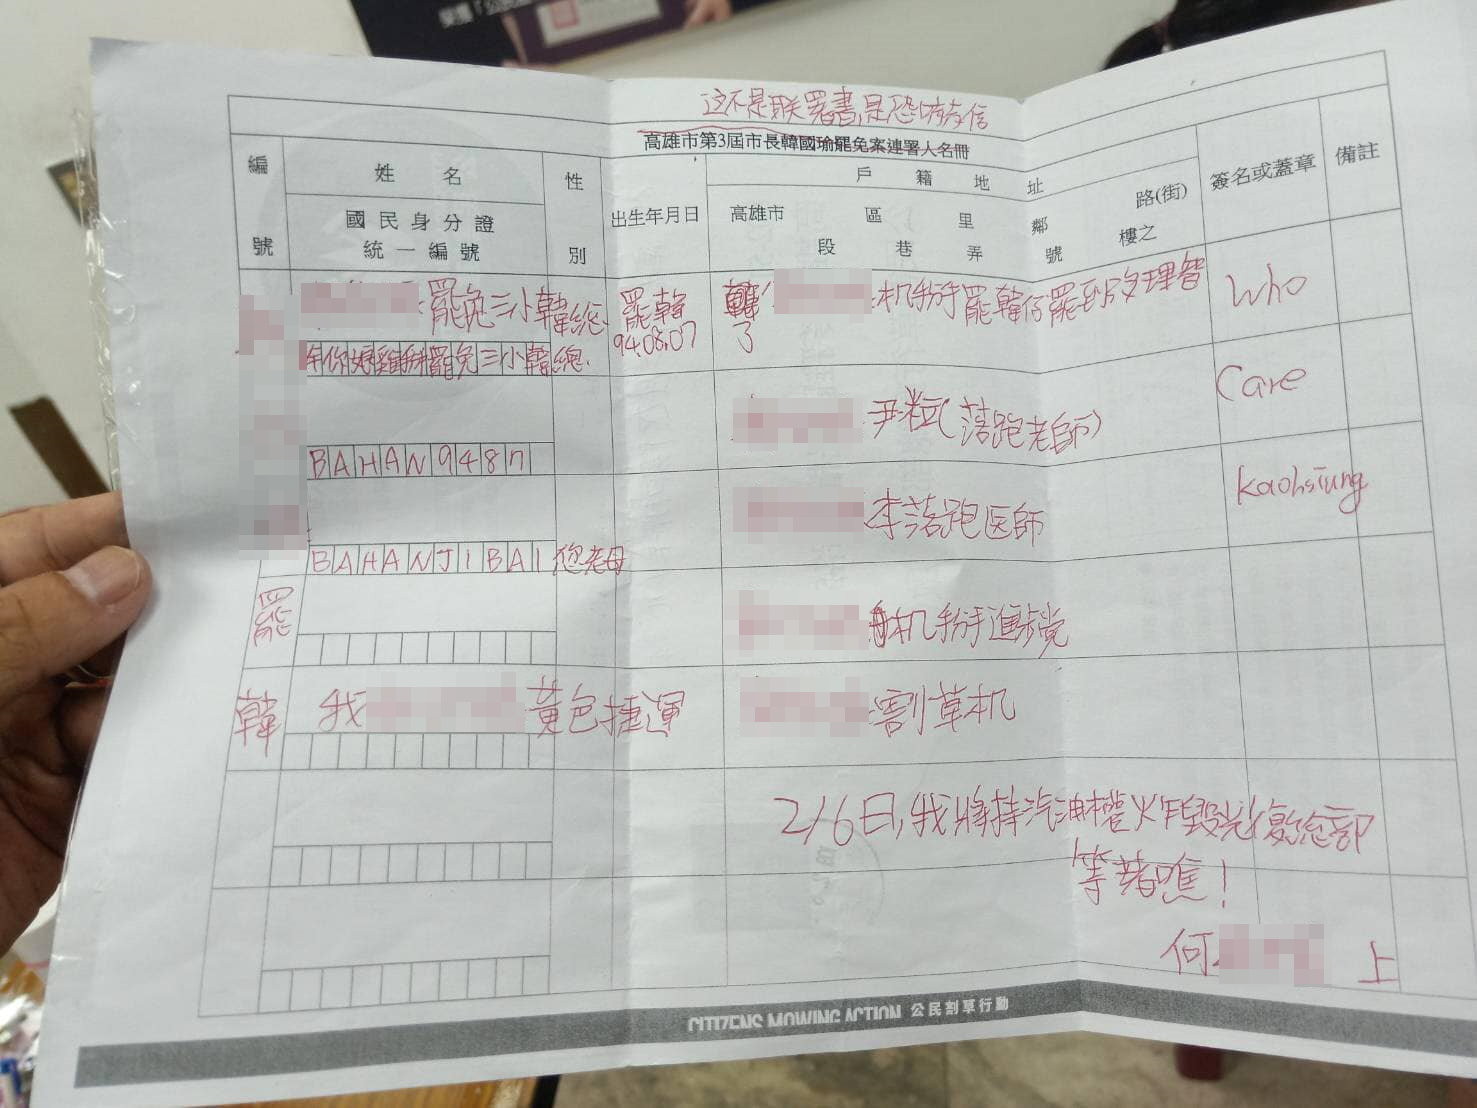 这不是联署書,是恐吓信
高雄市第3屆市長韓國瑜罷免案連署人名冊
編號
姓名
國民身分證
統一編號
性別
出生年月日
戶籍地址
高雄市 區 里 鄰 路(街)
段 巷 弄 號 樓之
簽名或蓋章
備註
罷免三小韓總
罷韓
94.08.07
机掰罷韓仔罷到沒理智
了
Who
罷免三小韓總
尹立(落跑老師)
Care
BAHAN9487
李落跑医師
Kaohsiung
BAHANJIBAI 您老母
罷
机掰進步党
韓
我
黃色捷運
割草机
2/6日,我將持汽油桶炸毀光復總部
等著瞧!
何 上
CITIZENS MOWING ACTION 公民割草行動